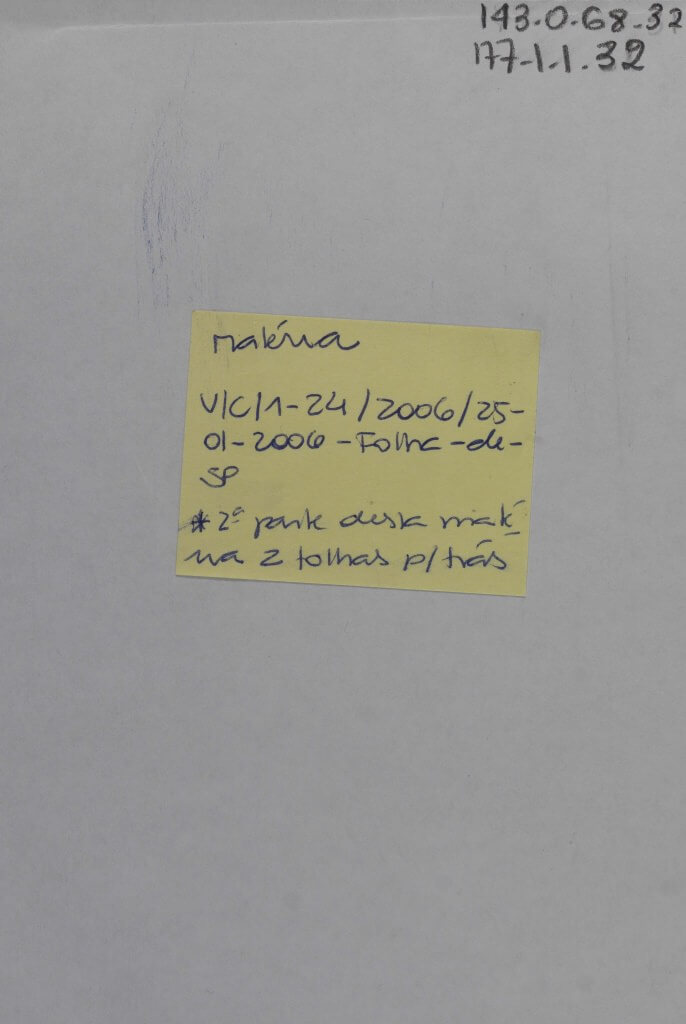 143-0-68-32
177-1-1.32
matéria
V/C/1-24/2006/25-
01-2006-Folha-de-
SP
*2ª parte desta maté-
ria 2 folhas p/trás